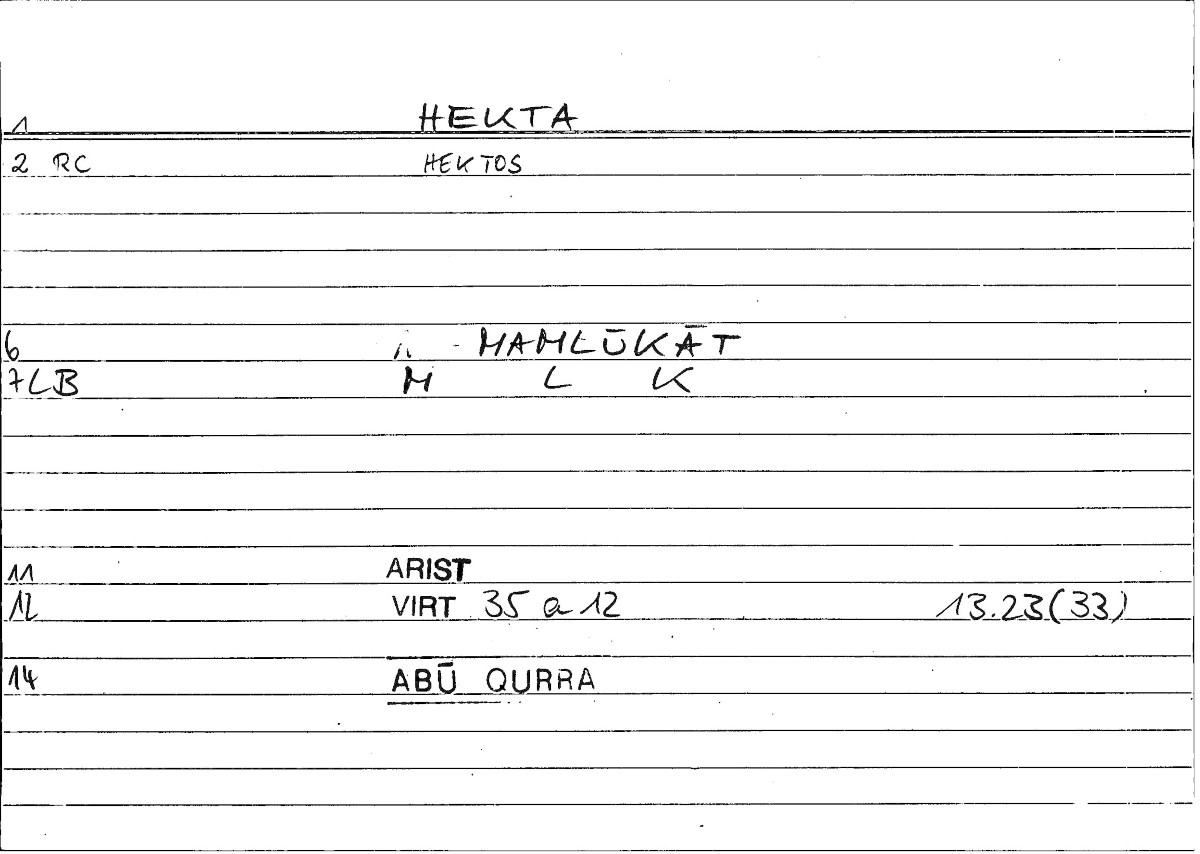 1 HEKTA
2 RC HEKTOS
6 - MAMLŪKĀT
7 LB M L K
11 ARIST
12 VIRT 35 a 12 13.23(33)
14 ABŪ QURRA